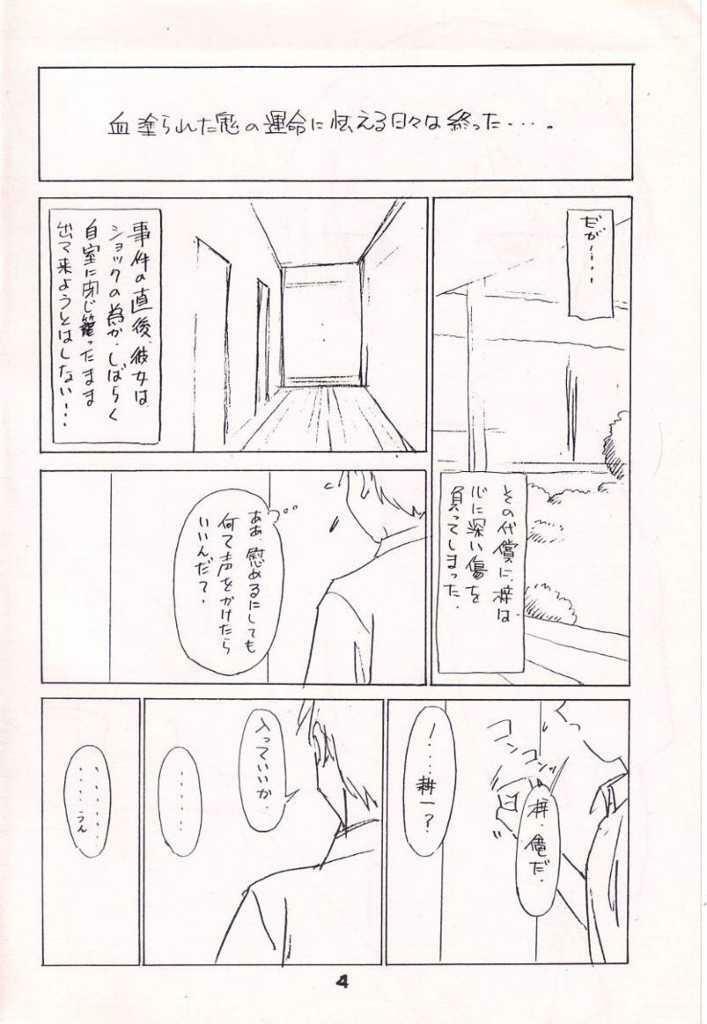 血塗られた鬼の運命に怯える日々は終った・・・。
だが・・・・
その代償に、梓は
心に深い傷を
負ってしまった．
事件の直後、彼女は、
ショックの為か、しばらく
自室に閉じ籠ったまま
出て来ようとはしない!・・
ああ 慰めるにしても
何て声をかけたら
いいんだて．
コン
コン
梓．俺だ．
!・・・耕一?
入っていいか．
・・・・・
・・・・・
・・・・うん
4